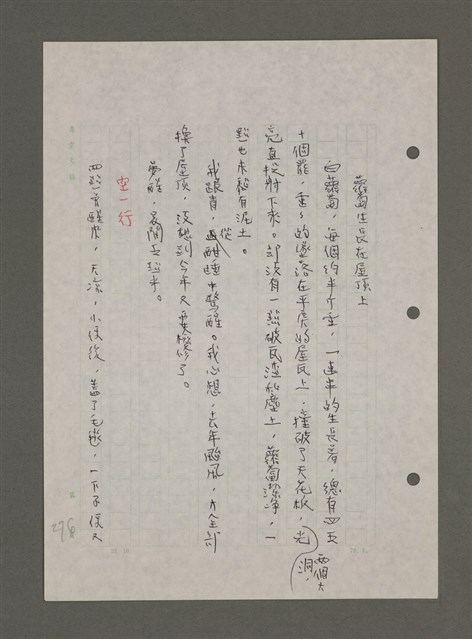 蘿蔔生長在屋頂上
白蘿蔔,每個約半斤重,一連串的生長著,總有四五
十個罷,重々的墜落在平房的屋瓦上,撞破了天花板,兩個大洞,光
亮直投射下來。却沒有一點破瓦渣和塵土,蘿蔔潔淨,一
點也未黏有泥土。
我跟青,從酣睡中驚醒。我心想,去年颱風,才全部
換了屋頂,沒想到今年又要檢修了。
夢醒,夜間五點半。
空一行
四點一刻醒來,天涼,小便後,蓋了毛毯,一下子便又
276